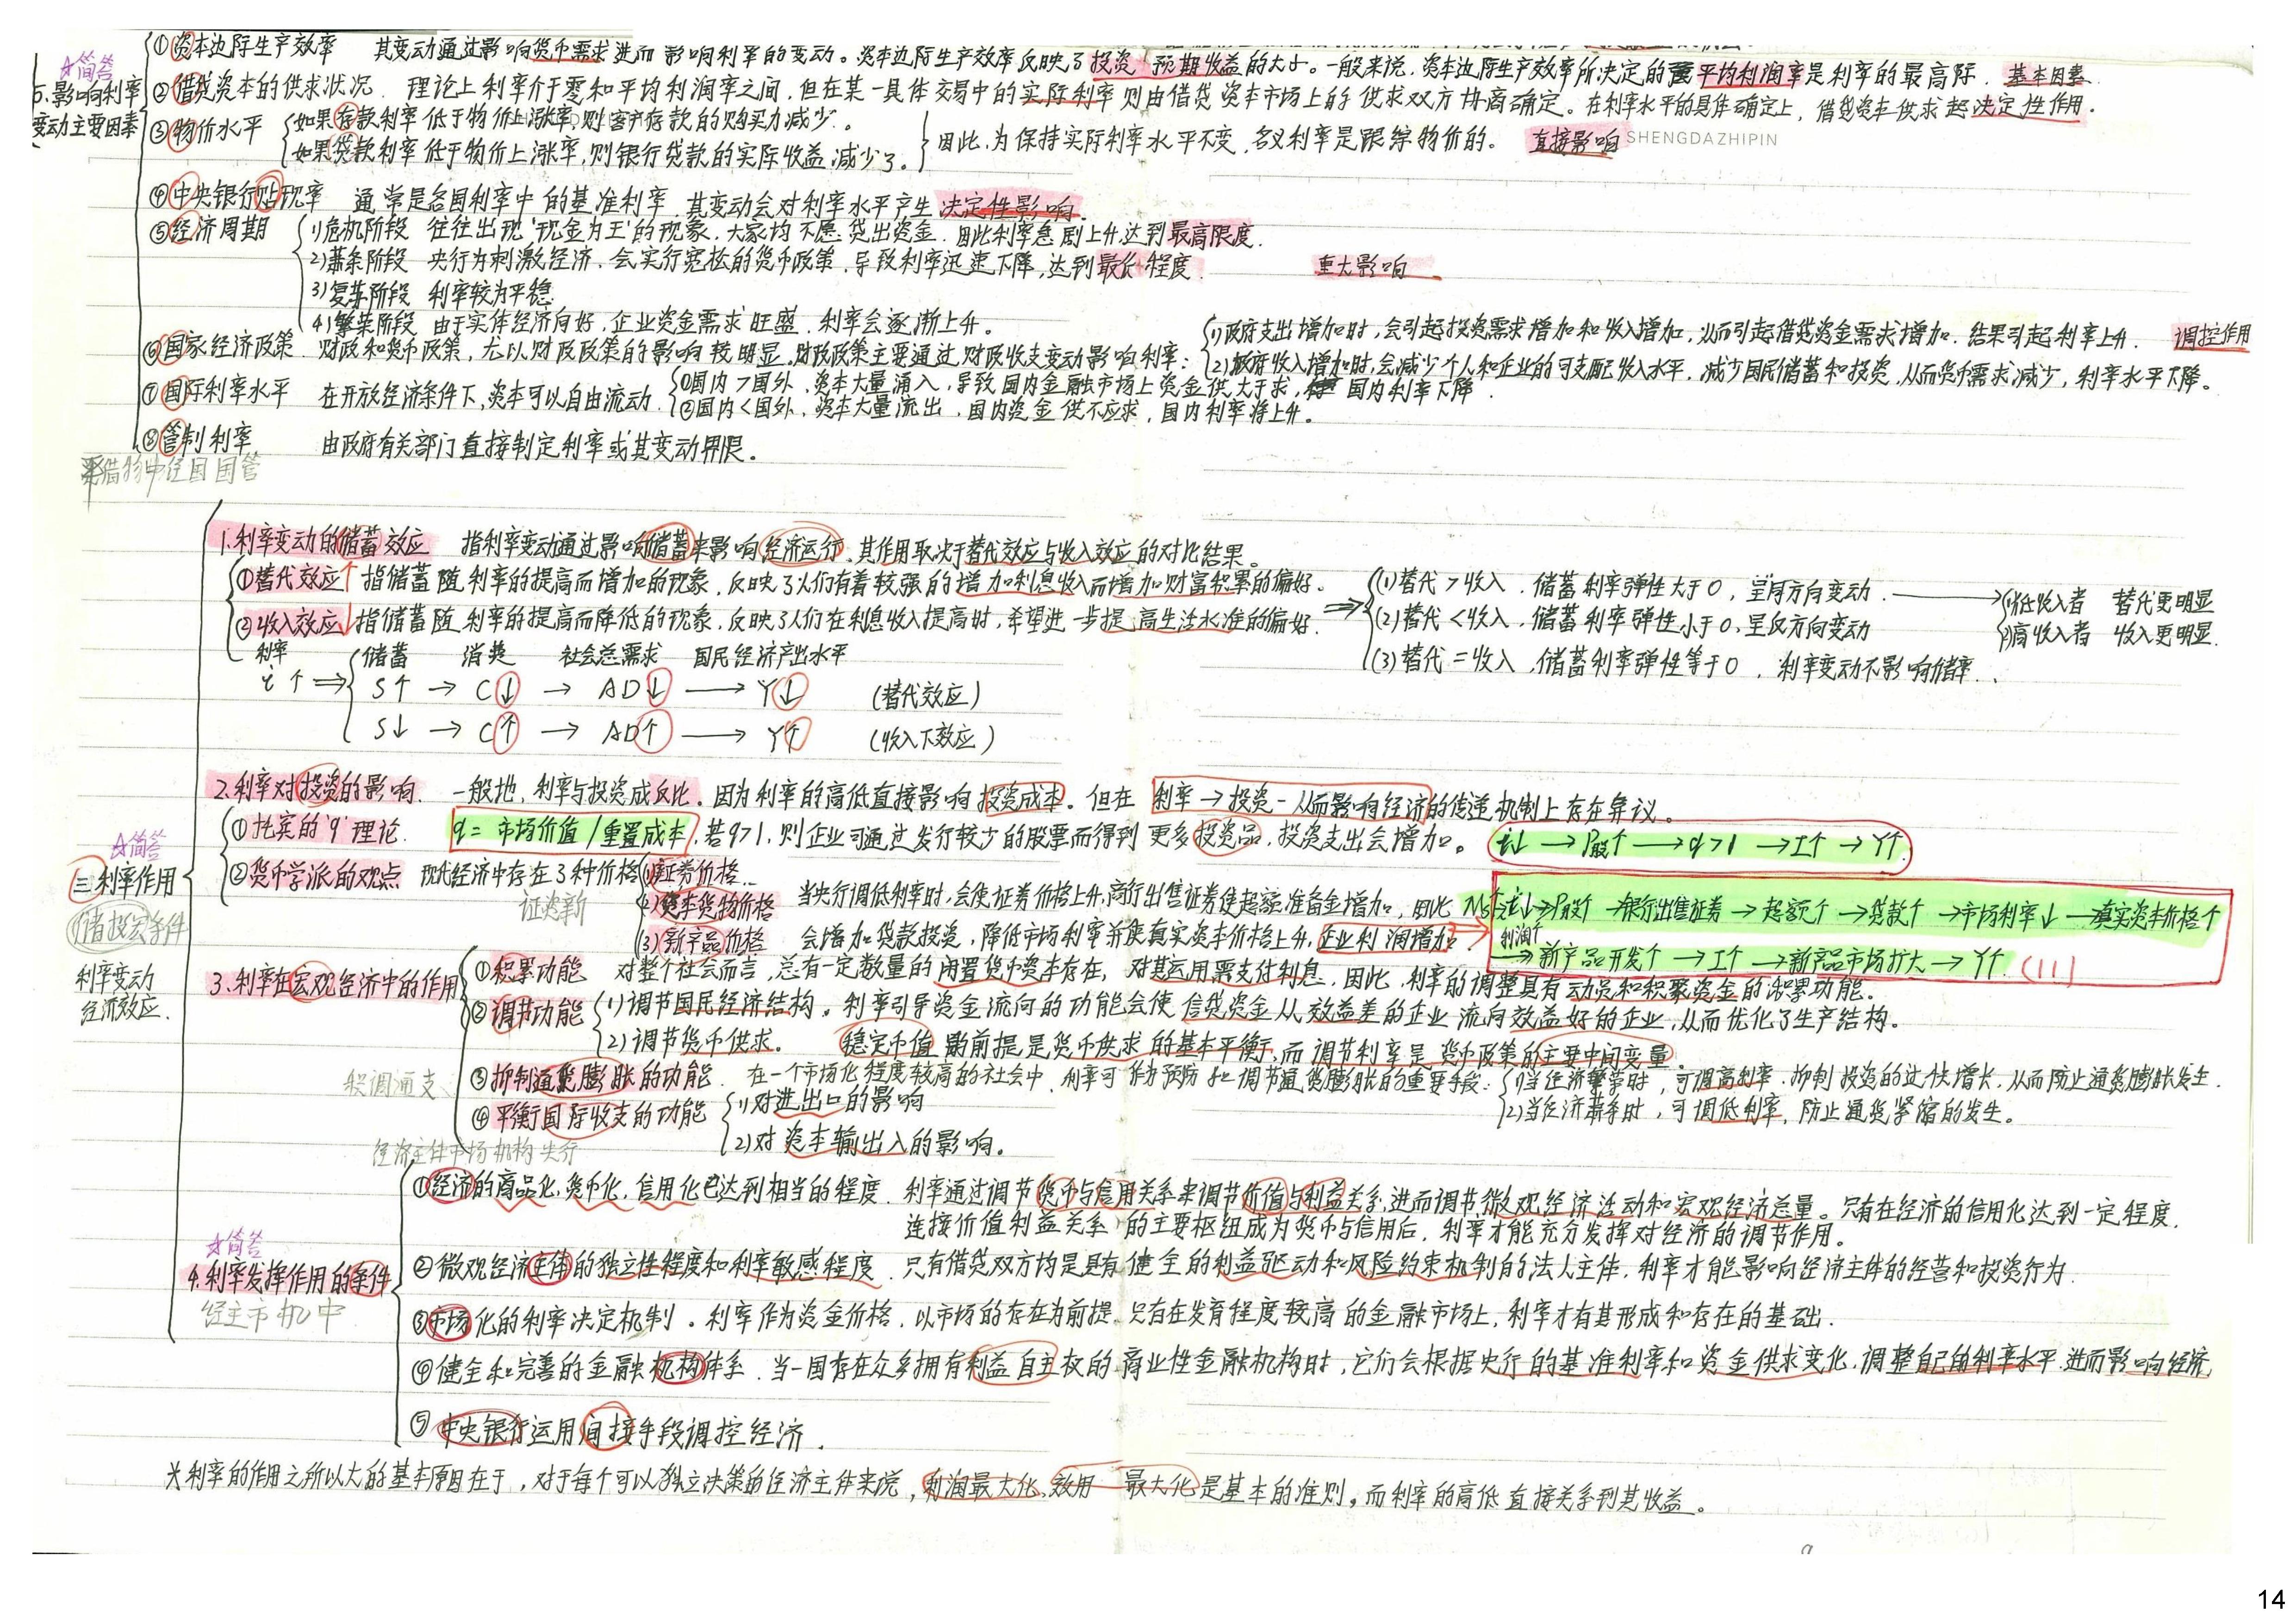 ☆简答
5.影响利率
变动主要因素
①资本边际生产效率 其变动通过影响货币需求进而影响利率的变动。资本边际生产效率反映了投资预期收益的大小。一般来说,资本边际生产效率所决定的平均利润率是利率的最高际. 基本因素
②借贷资本的供求状况. 理论上利率介于零和平均利润率之间,但在某一具体交易中的实际利率则由借贷资本市场上的供求双方协商确定。在利率水平的具体确定上,借贷资本供求起决定性作用.
③物价水平
如果存款利率低于物价上涨率则客户存款的购买力减少。
如果贷款利率低于物价上涨率,则银行贷款的实际收益减少了。
因此,为保持实际利率水平不变,名义利率是跟综物价的。 直接影响
SHENGDAZHIPIN
④中央银行贴现率 通常是各国利率中的基准利率,其变动会对利率水平产生决定性影响.
⑤经济周期
1)危机阶段 往往出现"现金为王"的现象,大家均不愿贷出资金.因此利率急剧上升,达到最高限度.
2)萧条阶段 央行为刺激经济,会实行宽松的货币政策,导致利率迅速下降,达到最低程度. 重大影响
3)复苏阶段 利率较为平稳.
4)繁荣阶段 由于实体经济向好,企业资金需求旺盛,利率会逐渐上升。
⑥国家经济政策. 财政和货币政策,尤以财政政策的影响较明显.财政政策主要通过财政收支变动影响利率:
(1)政府支出增加时,会引起投资需求增加和收入增加,从而引起借贷资金需求增加.结果引起利率上升. 调控作用
(2)政府收入增加时,会减少个人和企业的可支配收入水平,减少国民储蓄和投资,从而货币需求减少,利率水平下降。
⑦国际利率水平 在开放经济条件下,资本可以自由流动.
①国内>国外,资本大量涌入,导致国内金融市场上资金供大于求,国内利率下降.
②国内<国外,资本大量流出,国内资金供不应求,国内利率将上升。
⑧管制利率 由政府有关部门直接制定利率或其变动界限。
借物中经国国管
1.利率变动的储蓄效应 指利率变动通过影响储蓄来影响经济运行,其作用取决于替代效应与收入效应的对比结果。
①替代效应↑ 指储蓄随利率的提高而增加的现象,反映了人们有着较强的增加利息收入而增加财富积累的偏好.
②收入效应↓ 指储蓄随利率的提高而降低的现象,反映了人们在利息收入提高时,希望进一步提高生活水准的偏好.
⇒
(1)替代>收入,储蓄利率弹性大于0,呈同方向变动. →
(2)替代<收入,储蓄利率弹性小于0,呈反方向变动
(3)替代=收入,储蓄利率弹性等于0,利率变动不影响储率.
1)低收入者 替代更明显
2)高收入者 收入更明显.
利率 储蓄 消费 社会总需求 国民经济产出水平
i↑ ⇒
S↑ → C↓ → AD↓ → Y↓ (替代效应)
S↓ → C↑ → AD↑ → Y↑ (收入下效应)
2.利率对投资的影响. 一般地,利率与投资成反比.因为利率的高低直接影响投资成本。但在利率→投资-从而影响经济的传递机制上存在异议。
①托宾的"q"理论. q=市场价值/重置成本,若q>1,则企业可通过发行较少的股票而得到更多投资品,投资支出会增加。 i↓→P股↑→q>1→I↑→Y↑.
☆简答
三利率作用
储投宏条件
利率变动
经济效应.
②货币学派的观点 现代经济中存在3种价格
(1)证券价格..
(2)资本货物价格
(3)新产品价格
证资新
当央行调低利率时,会使证券价格上升,商行出售证券使超额准备金增加,因此
会增加贷款投资,降低市场利率并使真实资本价格上升,企业利润增加
Ms↑→i↓→P股↑→银行出售证券→超额↑→贷款↑→市场利率↓→真实资本价格↑
利润↑
→新产品开发↑→I↑→新产品市场扩大→Y↑.(11)
3.利率在宏观经济中的作用
①积累功能 对整个社会而言,总有一定数量的闲置货币资本存在,对其运用需支付利息,因此,利率的调整具有动员和积聚资金的积累功能.
②调节功能
(1)调节国民经济结构。利率引导资金流向的功能会使信贷资金从效益差的企业流向效益好的企业,从而优化了生产结构。
(2)调节货币供求. 稳定币值的前提是货币供求的基本平衡,而调节利率是货币政策的主要中间变量.
积调通支
③抑制通货膨胀的功能. 在一个市场化程度较高的社会中,利率可作为预防和调节通货膨胀的重要手段:
(1)当经济繁荣时,可调高利率,抑制投资的过快增长,从而防止通货膨胀发生.
(2)当经济萧条时,可调低利率,防止通货紧缩的发生。
④平衡国际收支的功能
1)对进出口的影响
2)对资本输出入的影响。
经济主体市场机构央行
☆简答
4.利率发挥作用的条件
经主市机中
①经济的商品化,货币化,信用化已达到相当的程度. 利率通过调节货币与信用关系来调节价值与利益关系,进而调节微观经济活动和宏观经济总量。只有在经济的信用化达到一定程度,
连接价值利益关系的主要枢纽成为货币与信用后,利率才能充分发挥对经济的调节作用。
②微观经济主体的独立性程度和利率敏感程度. 只有借贷双方均是具有健全的利益驱动和风险约束机制的法人主体,利率才能影响经济主体的经营和投资行为.
③市场化的利率决定机制。利率作为资金价格,以市场的存在为前提.只有在发育程度较高的金融市场上,利率才有其形成和存在的基础.
④健全和完善的金融机构体系. 当一国存在众多拥有利益自主权的商业性金融机构时,它们会根据央行的基准利率和资金供求变化,调整自己的利率水平.进而影响经济;
⑤中央银行运用间接手段调控经济.
☆利率的作用之所以大的基本原因在于,对于每个可以独立决策的经济主体来说,利润最大化、效用最大化是基本的准则,而利率的高低直接关系到其收益。
14